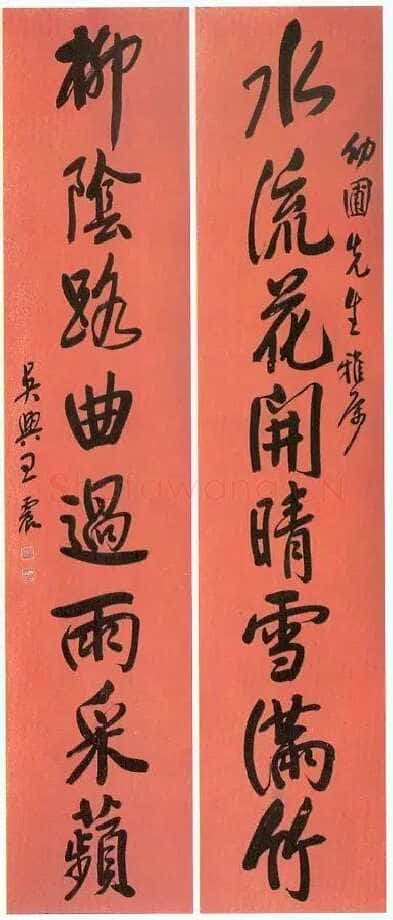 幼圃先生雅属
水流花開晴雪滿竹
柳陰路曲過雨采蘋
吳興王震